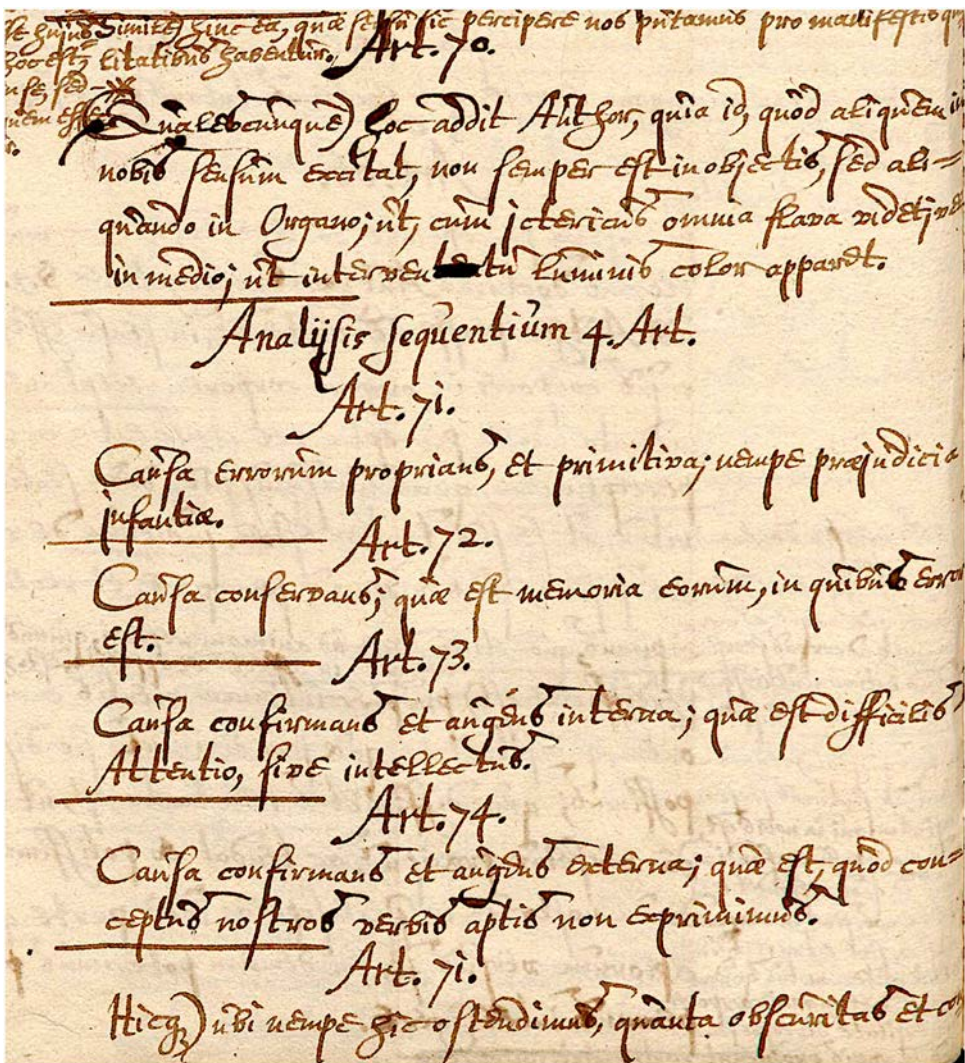 hujus similes) hinc ea, quæ sensu sic percipere nos putamus pro manifestis
hoc est, litatibus habentur. Art. 70.
in se, sed
Qualescunque) hoc addit Author, quia id, quod aliquem in
nobis sensum excitat, non semper est in objectis, sed ali=
quando in Organo; ut, cum ictericus omnia flava videt; vel
in medio; ut interventu luminis color apparet.
Analysis sequentium 4. Art.
Art. 71.
Causa errorum proprians, et primitiva; nempe præjudicia
infantiæ.
Art. 72.
Causa conservans; quæ est memoria eorum, in quibus error
est.
Art. 73.
Causa confirmans et augens interna; quæ est difficilis
Attentio, sive intellectus.
Art. 74.
Causa confirmans et augens externa; quæ est, quod con=
ceptus nostros verbis aptis non exprimimus.
Art. 71.
Hicq3) ubi nempe hic ostendimus, quanta obscuritas et